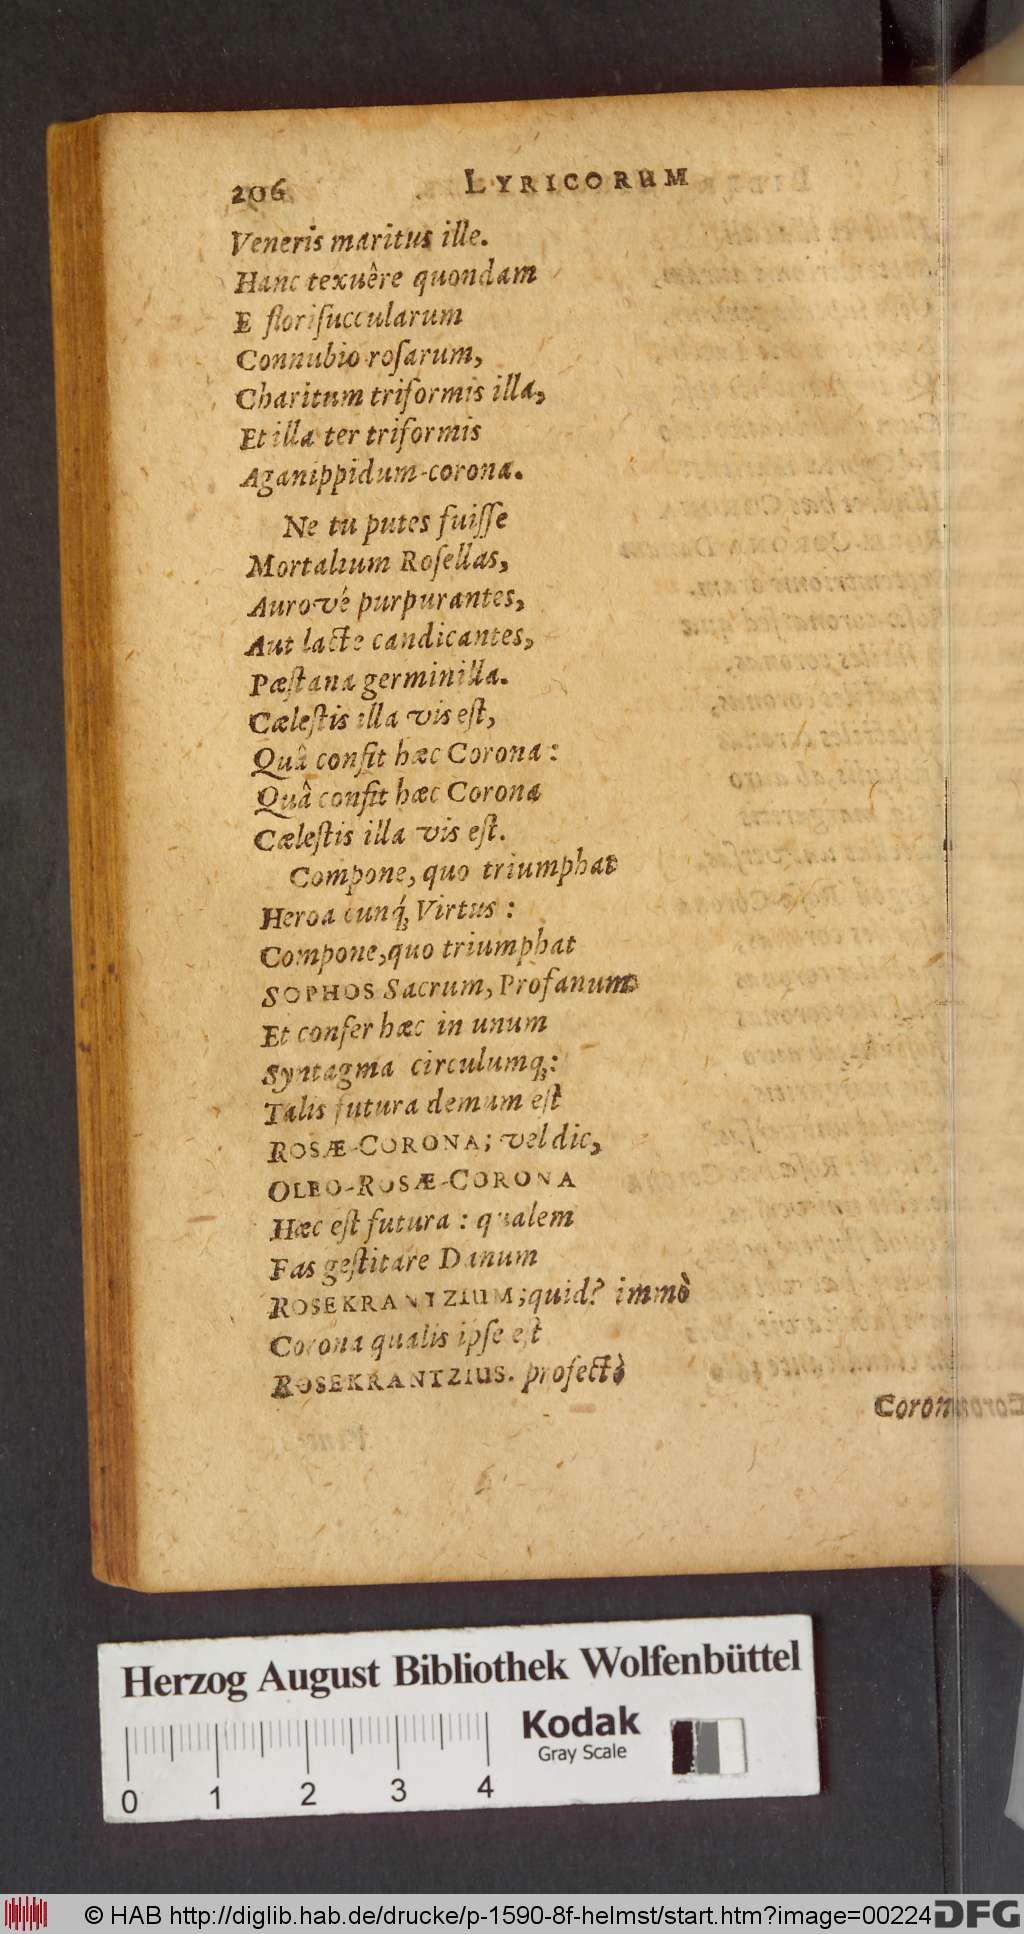 206 LYRICORUM
Veneris maritus ille.
Hanc texuêre quondam
E floriſuccularum
Connubio roſarum,
Charitum triformis illa,
Et illa ter triformis
Aganippidum corona.
Ne tu putes fuiſſe
Mortalium Roſellas,
Aurové purpurantes,
Aut lacte candicantes,
Pæſtana germinilla.
Cæleſtis illa vis eſt,
Quâ confit hæc Corona:
Quâ confit hæc Corona
Cæleſtis illa vis eſt.
Compone, quo triumphat
Heroa cunq́ꝫ Virtus:
Compone, quo triumphat
SOPHOS Sacrum, Profanum
Et confer hæc in unum
Syntagma circulumqꝫ:
Talis futura demum eſt
ROSÆ-CORONA; vel dic,
OLEO-ROSÆ-CORONA
Hæc eſt futura: qualem
Fas geſtitare Danum
ROSEKRANTZIUM; quid? immò
Corona qualis ipſe eſt
ROSEKRANTZIUS. profectò
Herzog August Bibliothek Wolfenbüttel
Kodak
Gray Scale
0 1 2 3 4
© HAB http://diglib.hab.de/drucke/p-1590-8f-helmst/start.htm?image=00224
DFG